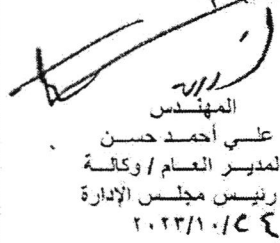 المهنـدس
علـي أحمـد حسـن
لمديـر العـام / وكالـة
رئيـس مجلـس الإدارة
٢٠٢٣/١٠/٢٤